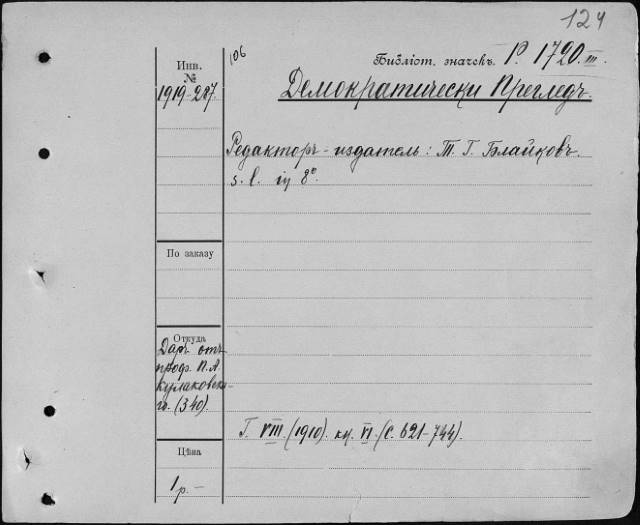 124
106
Библіот. значекъ P. 1720.III.
Инв.
№
1919-287.
Демократически Прегледъ.
Редакторъ-издатель: Т. Г. Блайковъ.
s. l. in 8°.
По заказу
Откуда
Даръ отъ
проф. П. А.
Кулаковска-
го. (340).
Г. VIII. (1910). кн. VI. (с. 621-744).
Цѣна
1 р. -